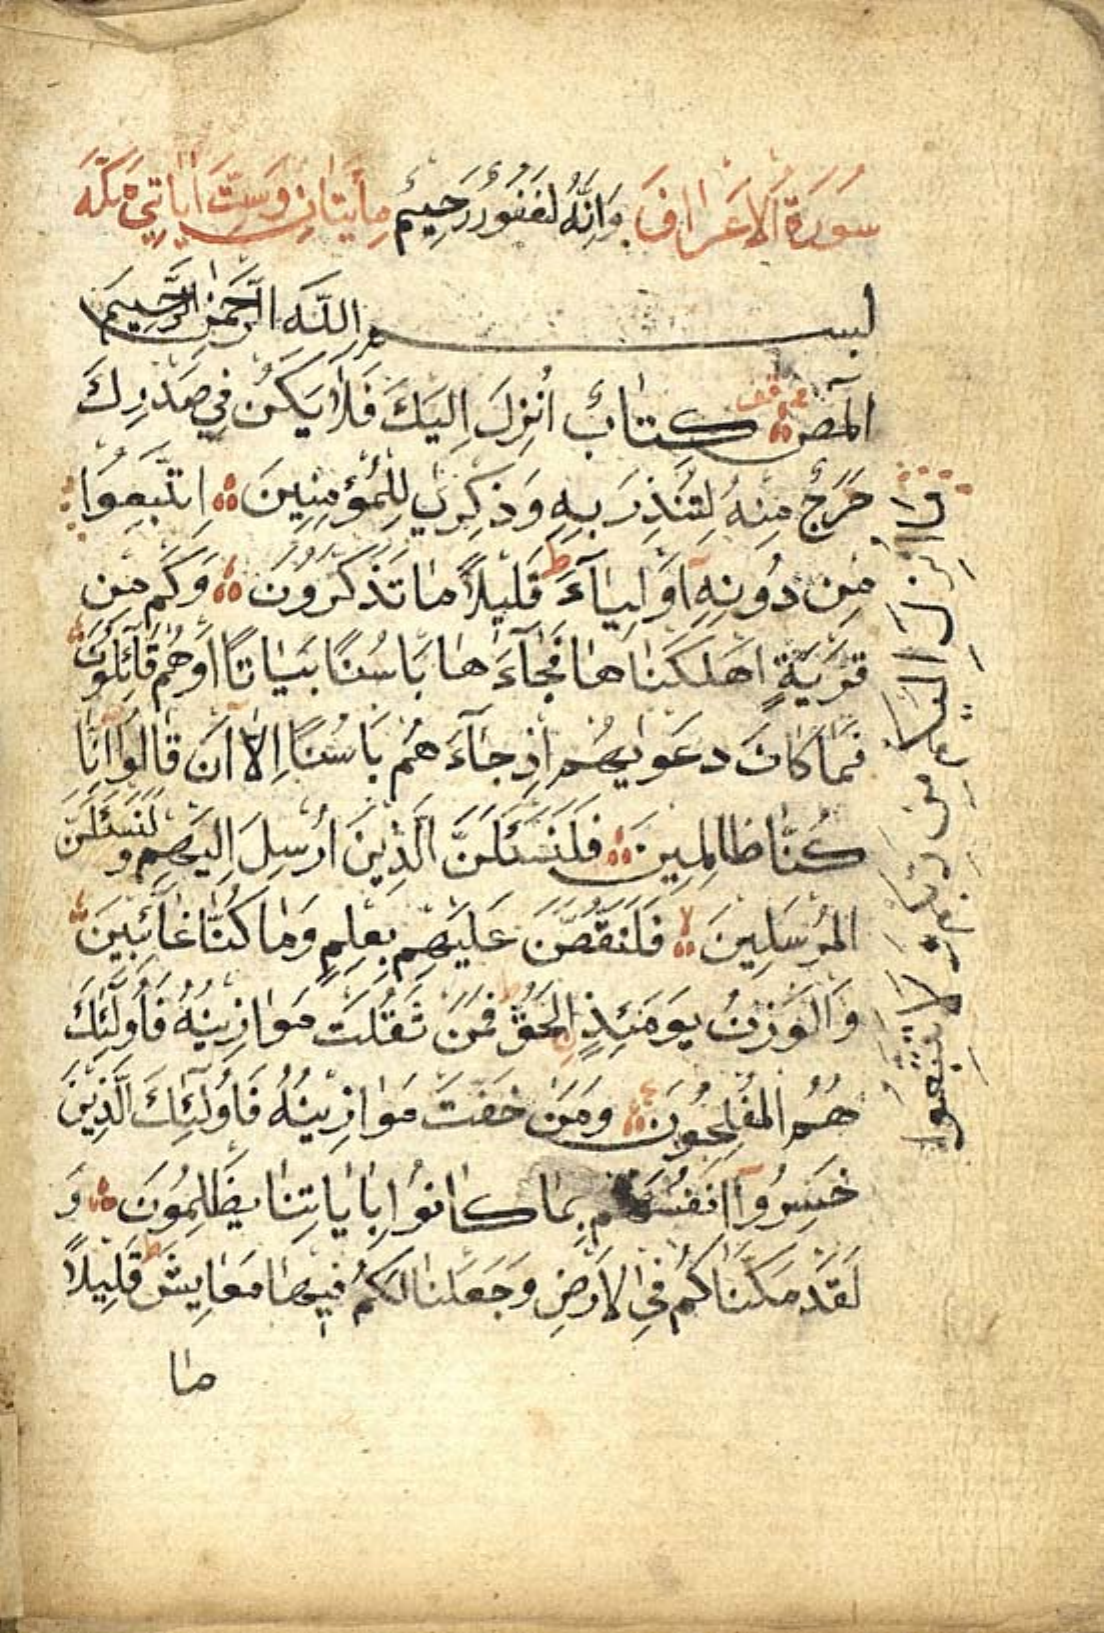 سُورَةُ الْاَعْرَافِ وَاِنَّهُ لَغَفُورٌ رَحِيمٌ مِأَيَتَانِ وَسِتَّ اٰيَاتٍ مَكِّيَّة
بسم اللّٰه الرَّحْمٰن الرَّحِيم
الٓمٓصٓ كِتَابٌ اُنْزِلَ اِلَيْكَ فَلَا يَكُنْ فِي صَدْرِكَ
حَرَجٌ مِنْهُ لِتُنْذِرَ بِهِ وَذِكْرٰى لِلْمُؤْمِنِينَ اِتَّبِعُوا
مَا اُنْزِلَ اِلَيْكُمْ مِنْ رَبِّكُمْ وَلَا تَتَّبِعُوا
مِنْ دُونِهِ اَوْلِيَآءَ قَلِيلًا مَا تَذَكَّرُونَ وَكَمْ مِنْ
قَرْيَةٍ اَهْلَكْنَاهَا فَجَآءَهَا بَاْسُنَا بَيَاتًا اَوْ هُمْ قَآئِلُونَ
فَمَا كَانَ دَعْوٰيهُمْ اِذْ جَآءَهُمْ بَاْسُنَا اِلَّا اَنْ قَالُوا اِنَّا
كُنَّا ظَالِمِينَ فَلَنَسْئَلَنَّ الَّذِينَ اُرْسِلَ اِلَيْهِمْ وَلَنَسْئَلَنَّ
الْمُرْسَلِينَ فَلَنَقُصَّنَّ عَلَيْهِمْ بِعِلْمٍ وَمَا كُنَّا غَآئِبِينَ
وَالْوَزْنُ يَوْمَئِذٍ الْحَقُّ فَمَنْ ثَقُلَتْ مَوَازِينُهُ فَاُولٰٓئِكَ
هُمُ الْمُفْلِحُونَ وَمَنْ خَفَّتْ مَوَازِينُهُ فَاُولٰٓئِكَ الَّذِينَ
خَسِرُوٓا اَنْفُسَهُمْ بِمَا كَانُوا بِاٰيَاتِنَا يَظْلِمُونَ وَ
لَقَدْ مَكَّنَّاكُمْ فِي الْاَرْضِ وَجَعَلْنَا لَكُمْ فِيهَا مَعَايِشَ قَلِيلًا
مَا